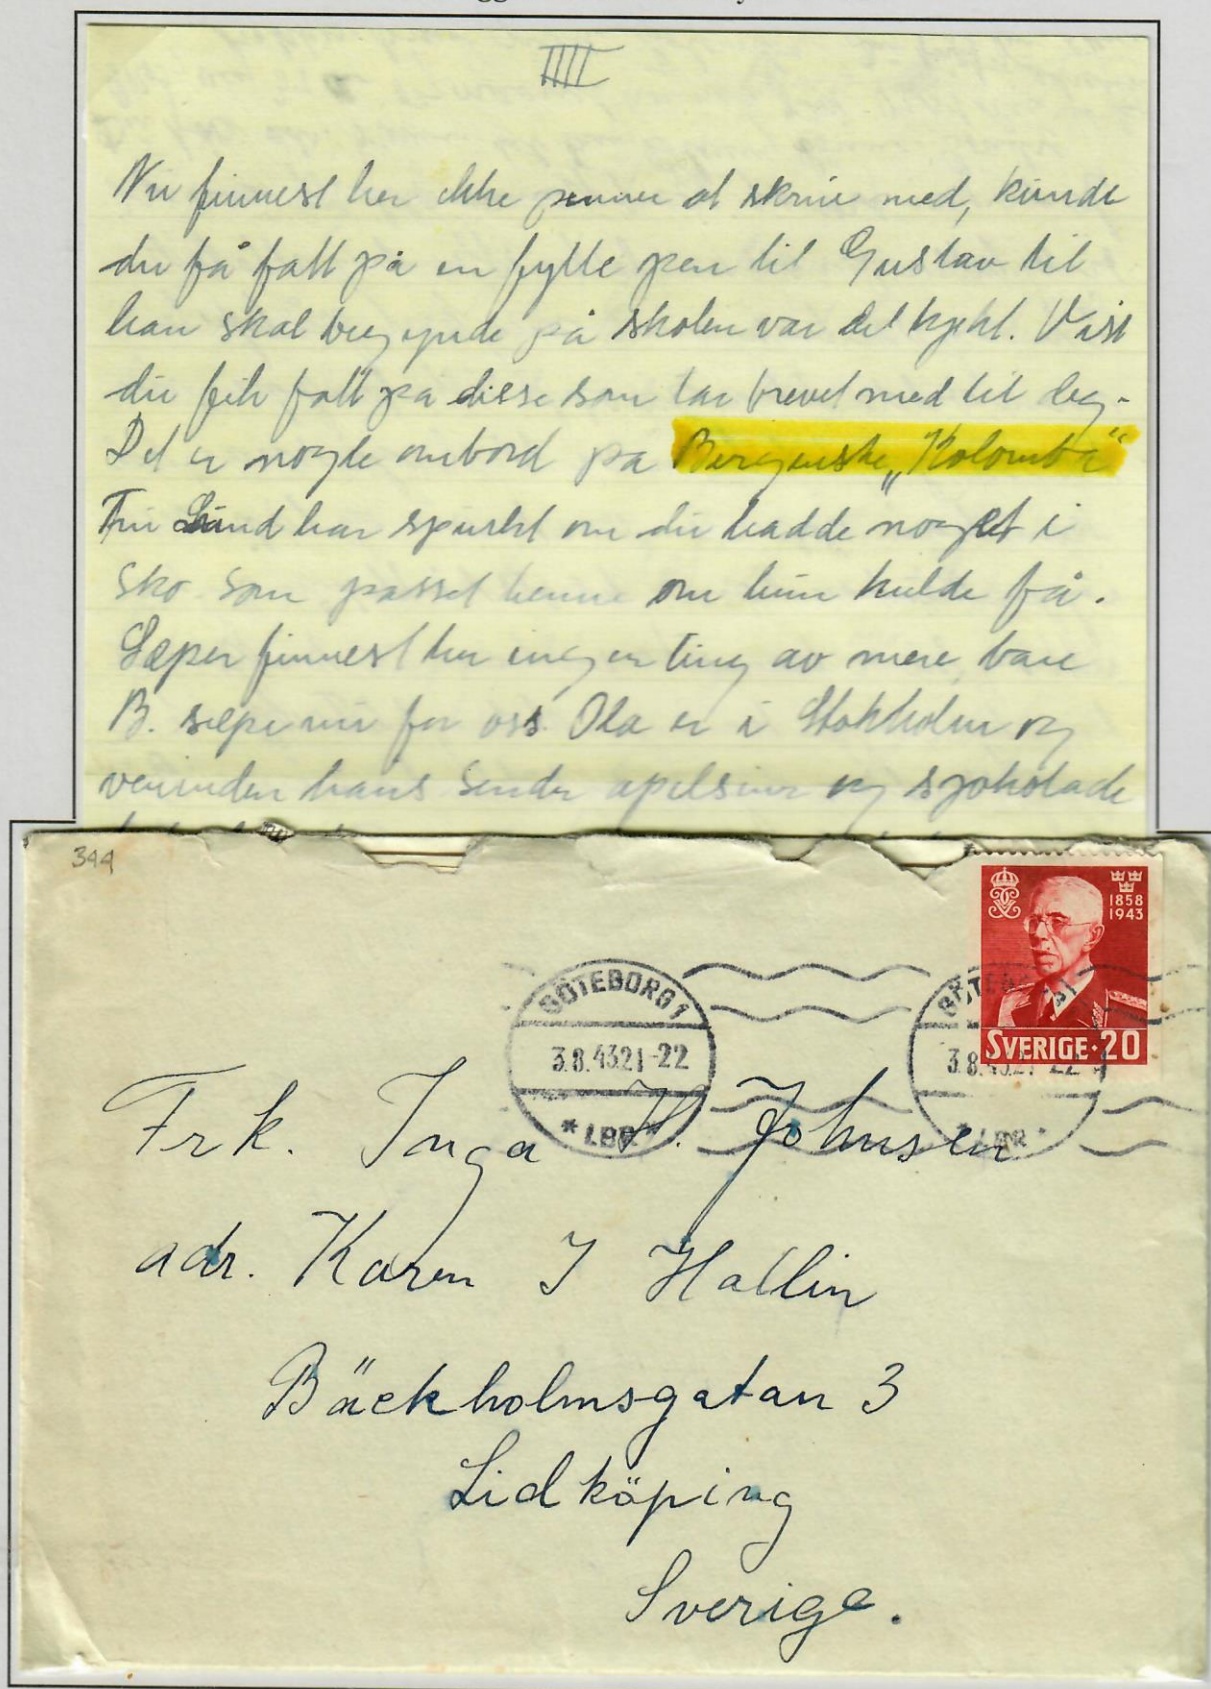 IIII
Nu finnest her ikke penner at skrive med, kunde
du få fatt på en fylle pen til Gustav til
han skal begynde på skolen var det kjekt. Vist
du fik fatt på disse som tar brevet med til deg-
Det er nogle ombord på Bergenske „Kolomba"
Fru Lund har spurt om du hadde noget i
Sko som passet henne om hun kulde få.
Sæper finnest her ingen ting av mere bare
B. sæpe nu for oss. Ola er i Stokholm og
veninden hans sender apelsiner og sjokolade
344
1858
1943
SVERIGE·20
GÖTEBORG 1
3.8.43 21-22
* LBR *
GÖTEBORG 1
3.8.43 21-22
LBR
Frk. Inga H. Johnsen
adr. Karen J Hallin
Bäckholmsgatan 3
Lidköping
Sverige.